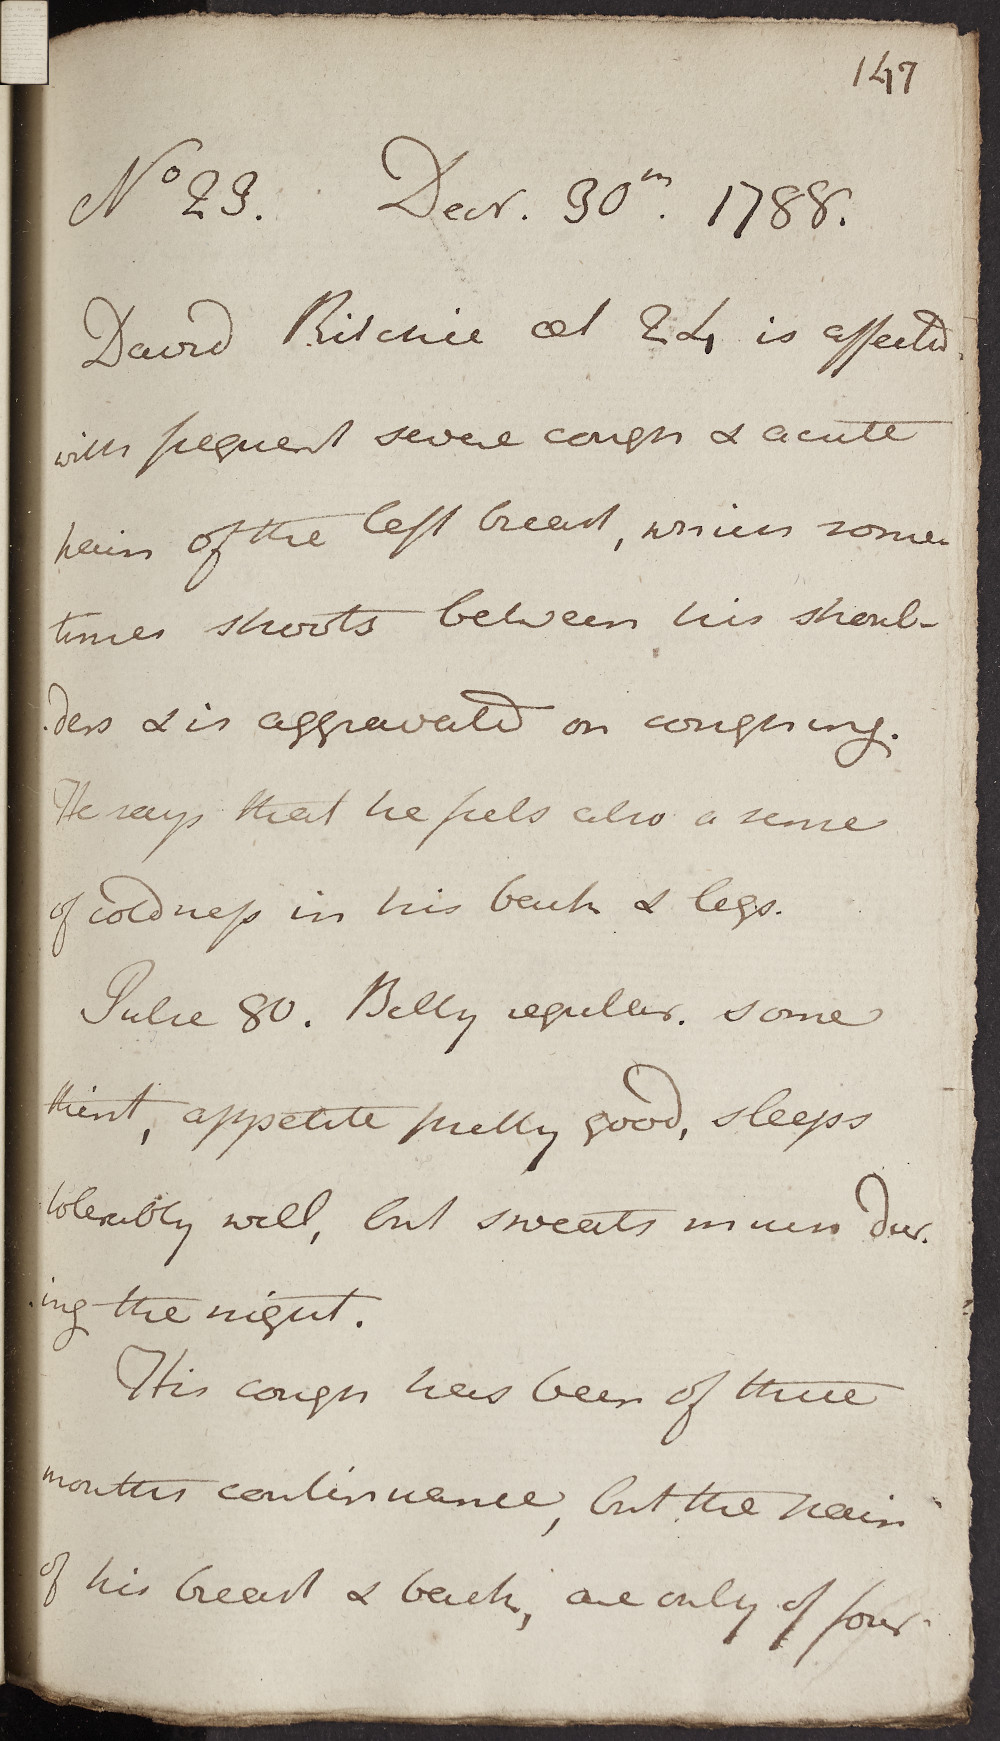 147
No 23. Decr. 30th. 1788.
David Ritchie æt 24 is affected
with frequent severe cough & acute
pain of the left breast, which some-
times shoots between his shoul-
ders & is aggravated on coughing.
He says that he feels also a sense
of coldness in his back & legs.
Pulse 80. Belly regular. some
thirst, appetite pretty good, sleeps
tolerably well, but sweats much dur-
ing the night.
His cough has been of three
months continuance, but the pain
of his breast & back, are only of four